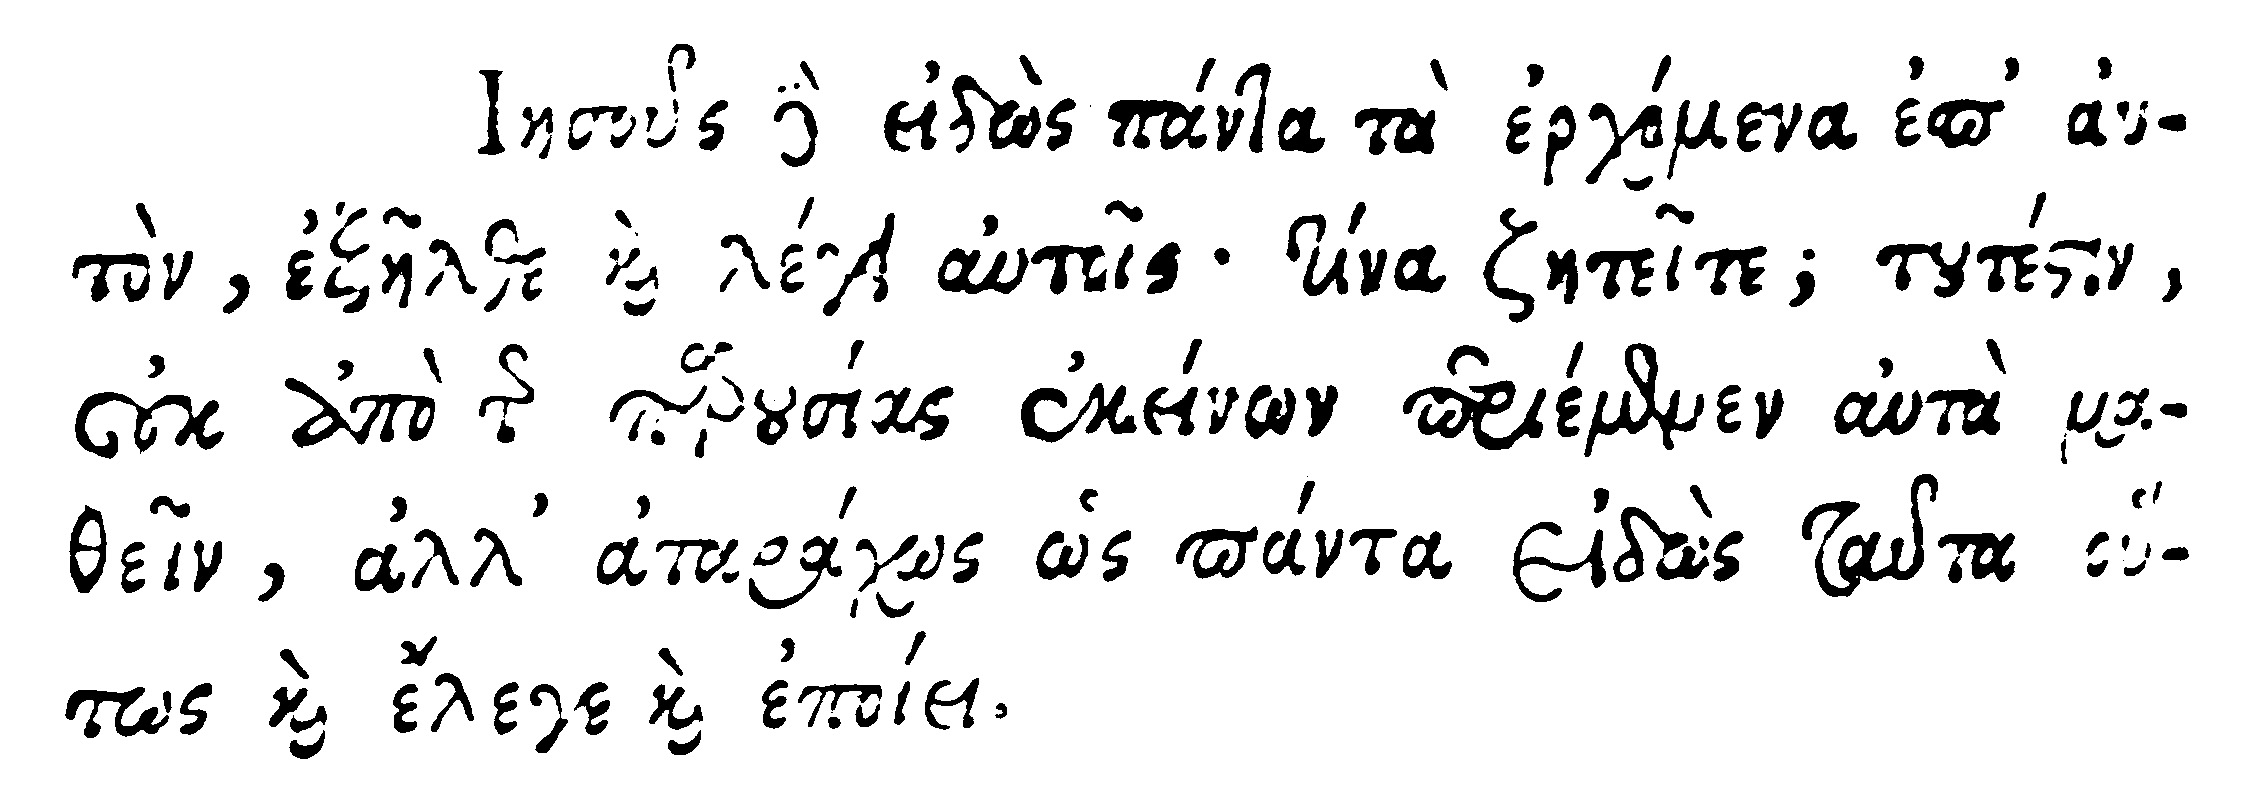 Ἰησοῦς δὲ εἰδὼς πάντα τὰ ἐρχόμενα ἐπ' αὐ-
τὸν, ἐξῆλθε καὶ λέγει αὐτοῖς· τίνα ζητεῖτε; τουτέστιν,
οὐκ ἀπὸ τῆς παρουσίας ἐκείνων περιέμεινεν αὐτὰ μα-
θεῖν, ἀλλ' ἀταράχως ὡς πάντα εἰδὼς ταῦτα οὕ-
τως καὶ ἔλεγε καὶ ἐποίει.